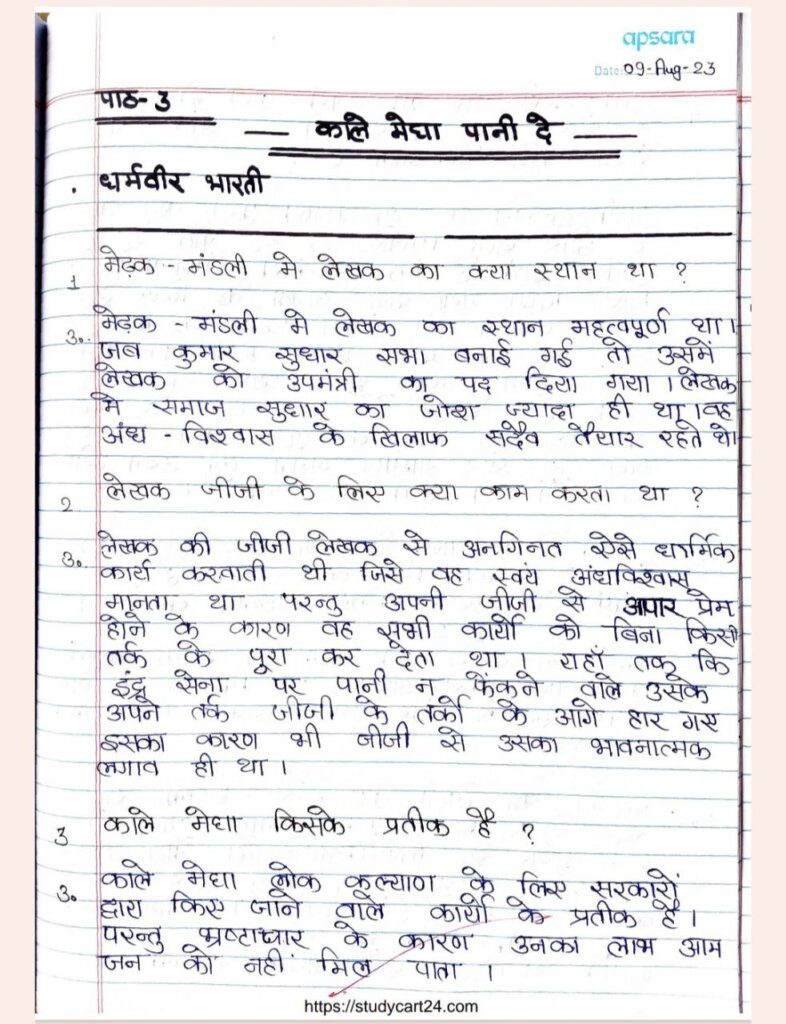 apsara
Date: 09-Aug-23
पाठ-3
— काले मेघा पानी दे —
. धर्मवीर भारती
1 मेढ़क - मंडली मे लेखक का क्या स्थान था ?
उ. मेढ़क - मंडली मे लेखक का स्थान महत्वपूर्ण था।
जब कुमार सुधार सभा बनाई गई तो उसमें
लेखक को उपमंत्री का पद दिया गया । लेखक
मे समाज सुधार का जोश ज्यादा ही था। वह
अंध - विश्वास के खिलाफ सदैव तैयार रहते थे।
2 लेखक जीजी के लिए क्या काम करता था ?
उ. लेखक की जीजी लेखक से अनगिनत ऐसे धार्मिक
कार्य करवाती थी जिसे वह स्वयं अंधविश्वास
मानता था परन्तु अपनी जीजी से अपार प्रेम
होने के कारण वह सभी कार्यो को बिना किसी
तर्क के पूरा कर देता था । यहाँ तक कि
इंद्र सेना पर पानी न फेंकने वाले उसके
अपने तर्क जीजी के तर्को के आगे हार गए
इसका कारण भी जीजी से उसका भावनात्मक
लगाव ही था ।
3 काले मेघा किसके प्रतीक है ?
उ. काले मेघा लोक कल्याण के लिए सरकारों
द्वारा किए जाने वाले कार्यो के प्रतीक है ।
परन्तु भ्रष्टाचार के कारण उनका लाभ आम
जन को नही मिल पाता ।
https://studycart24.com